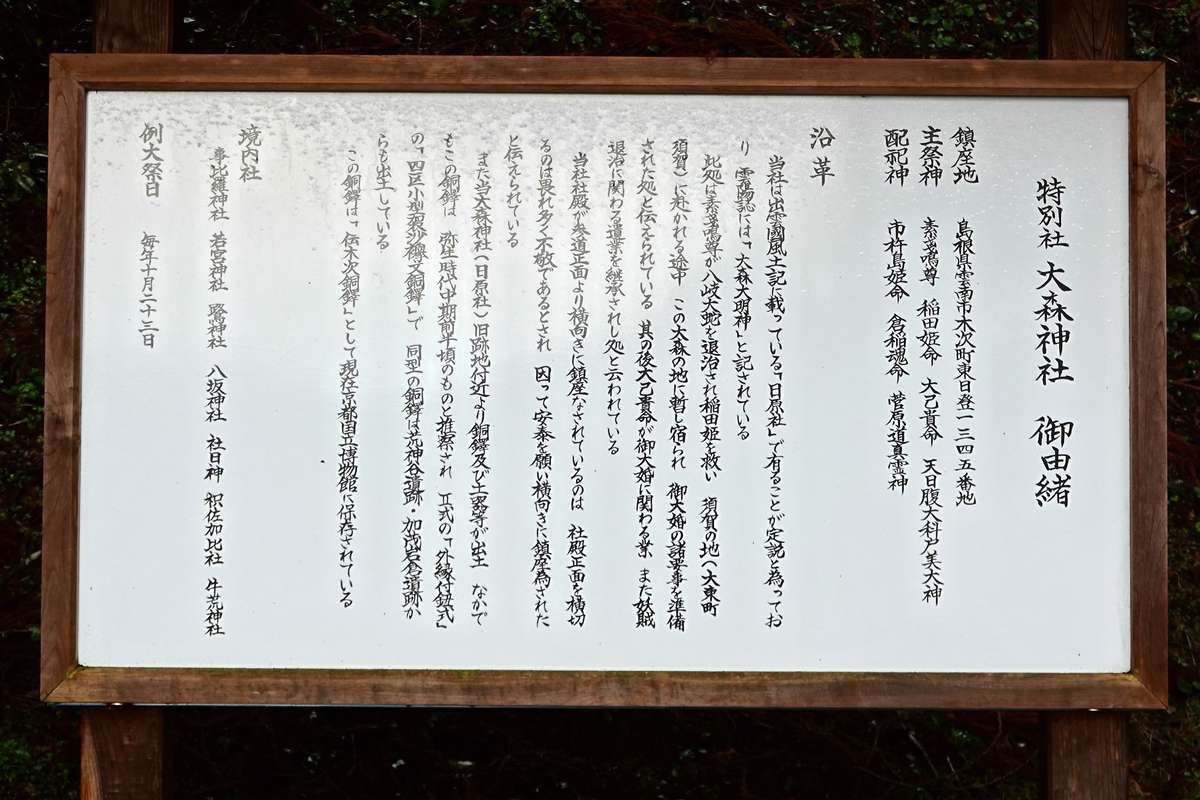 特別社 大森神社 御由緒
鎮座地 島根県雲南市木次町東日登一三四五番地
主祭神 素盞嗚尊 稲田姫命 大己貴命 天日腹大科戸美大神
配祀神 市杵島姫命 倉稲魂命 菅原道真霊神
沿革
当社は出雲國風土記に載っている「日原社」で有ることが定説と為ってお
り 雲陽誌には「大森大明神」と記されている
此処は素盞嗚尊が八岐大蛇を退治され稲田姫を救い 須賀の地(大東町
須賀)に赴かれる途中 この大森の地に暫し宿られ 御大婚の諸要事を準備
された処と伝えられている 其の後大己貴命が御大婚に関わる業 また妖賊
退治に関わる遺業を継承されし処と云われている
当社社殿が参道正面より横向きに鎮座なされているのは 社殿正面を横切
るのは畏れ多く不敬であるとされ 因って安泰を願い横向きに鎮座為された
と伝えられている
また当大森神社(日原社)旧跡地付近より銅鐸及び土器等が出土 なかで
もこの銅鐸は 弥生時代中期前半頃のものと推察され 正式の「外縁付鈕式」
の「四区小型袈裟襷文銅鐸」で 同型の銅鐸は荒神谷遺跡・加茂岩倉遺跡か
らも出土している
この銅鐸は「伝木次銅鐸」として現在京都国立博物館に保存されている
境内社
琴比羅神社 若宮神社 路神社 八坂神社 社日神 釈佐加比社 牛荒神社
例大祭日 毎年十月二十三日